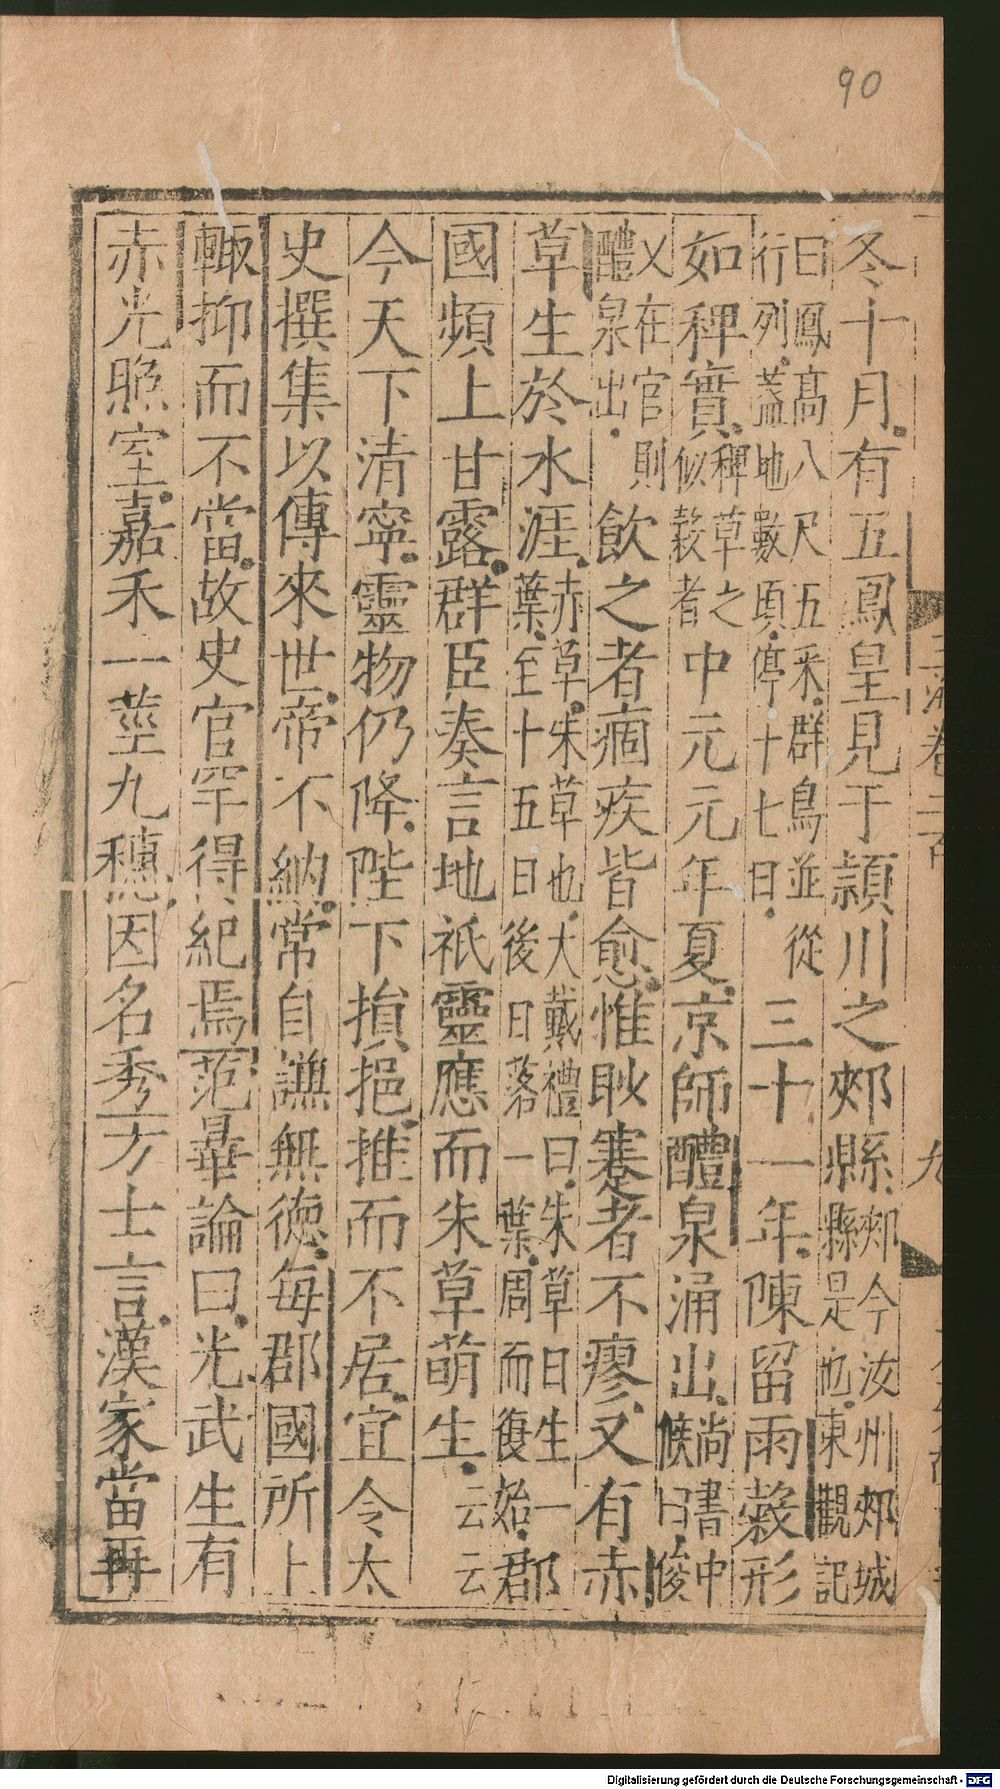 90
冬十月有五鳳皇見于潁川之郟縣郟今汝州郟城縣是也東觀記
曰鳳高八尺五采群鳥並從行列蓋地數頃停十七日三十一年陳留雨穀形
如稗實稗草之似穀者中元元年夏京師醴泉涌出尚書中候曰俊
乂在官則醴泉出飲之者痼疾皆愈惟眇蹇者不瘳又有赤
草生於水涯赤草朱草也大戴禮曰朱草日生一葉至十五日後日落一葉周而復始郡
國頻上甘露群臣奏言地祇靈應而朱草萌生云云
今天下清寧靈物仍降陛下損挹推而不居宜令太
史撰集以傳來世帝不納常自謙無德每郡國所上
輙抑而不當故史官罕得紀焉范曅論曰光武生有
赤光照室嘉禾一莖九穗因名秀方士言漢家當再
九
Digitalisierung gefördert durch die Deutsche Forschungsgemeinschaft - DFG